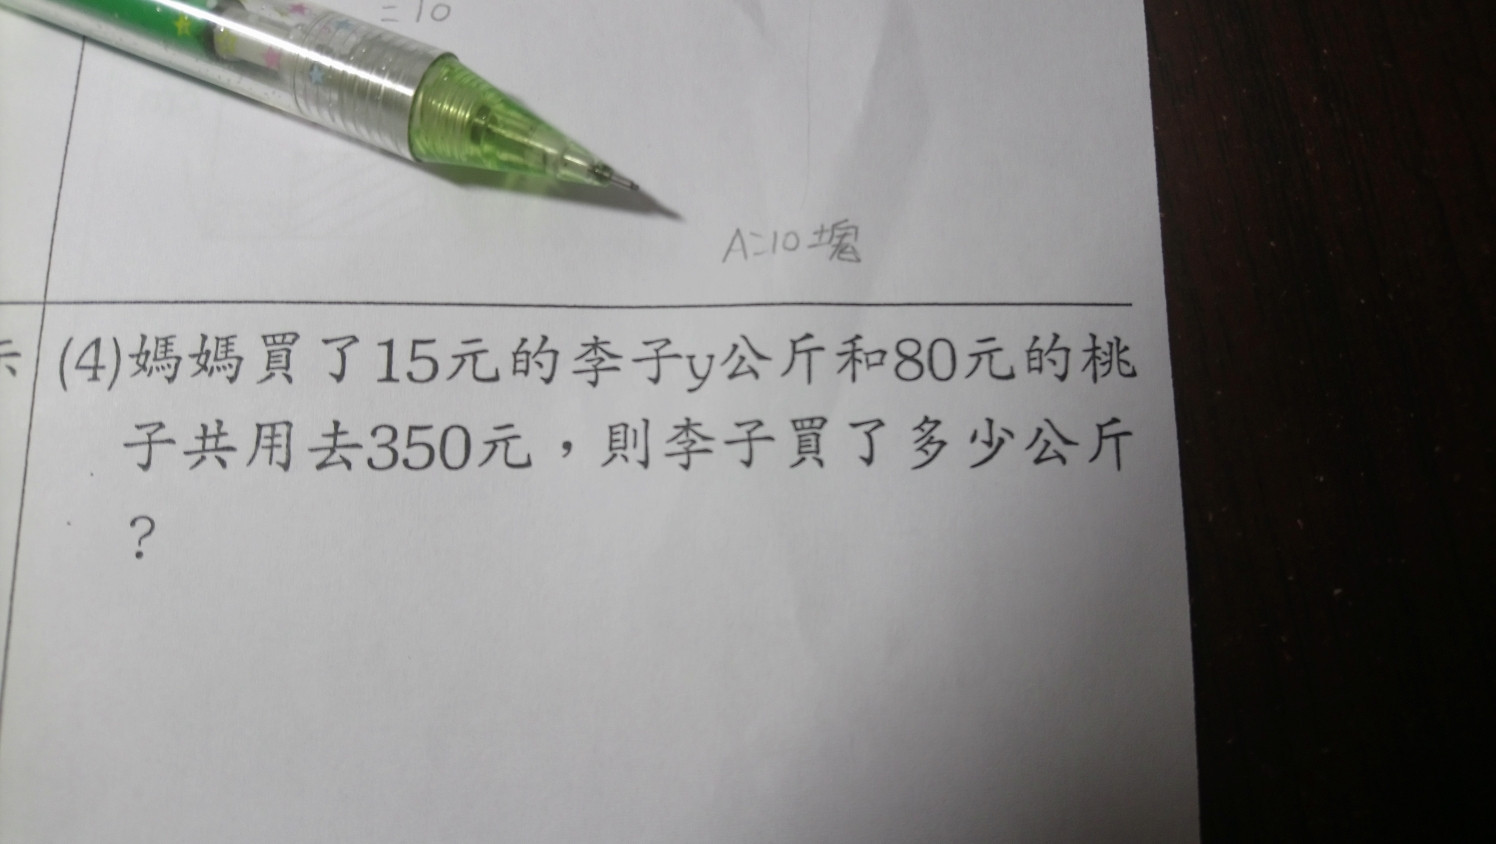 =10
A=10塊
(4)媽媽買了15元的李子y公斤和80元的桃
子共用去350元，則李子買了多少公斤
?